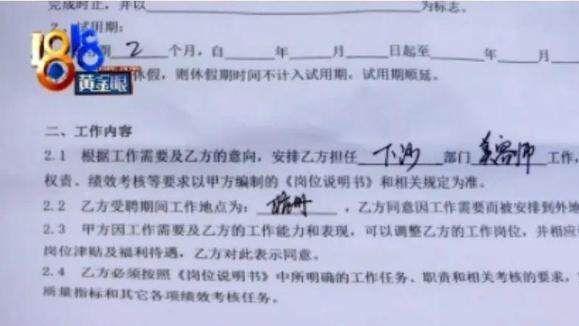 完成时止，并以＿＿＿＿为标志。
2. 试用期：
期 2 个月，自＿＿年＿＿月＿＿日起至＿＿年＿＿月
1818
黄金眼
休假，则休假期时间不计入试用期，试用期顺延。
二、工作内容
2.1 根据工作需要及乙方的意向，安排乙方担任 下沙 部门 美容师 工作，
权责、绩效考核等要求以甲方编制的《岗位说明书》和相关规定为准。
2.2 乙方受聘期间工作地点为： ，乙方同意因工作需要而被安排到外地
2.3 甲方因工作需要及乙方的工作能力和表现，可以调整乙方的工作岗位，并相应
岗位津贴及福利待遇，乙方对此表示同意。
2.4 乙方必须按照《岗位说明书》中所明确的工作任务、职责和相关考核的要求，
质量指标和其它各项绩效考核任务。